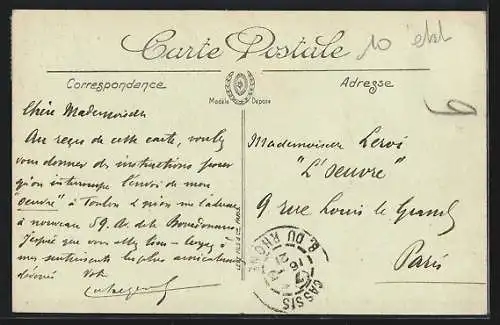 Carte Postale
10
Correspondance
Adresse
Modèle Déposé
Chère Mademoiselle
Au reçu de cette carte, voulez
vous donner des instructions pour
qu'on interrompe l'envoi de mon
"oeuvre" à Toulon & qu'on me l'adresse
à nouveau 59. A. de la Bourdonnais
J'espère que vous allez bien
mes sentiments les plus
dévoués
Mademoiselle
"L'oeuvre"
9 rue Louis le Grand
Paris
CASSIS
B. DU RHONE